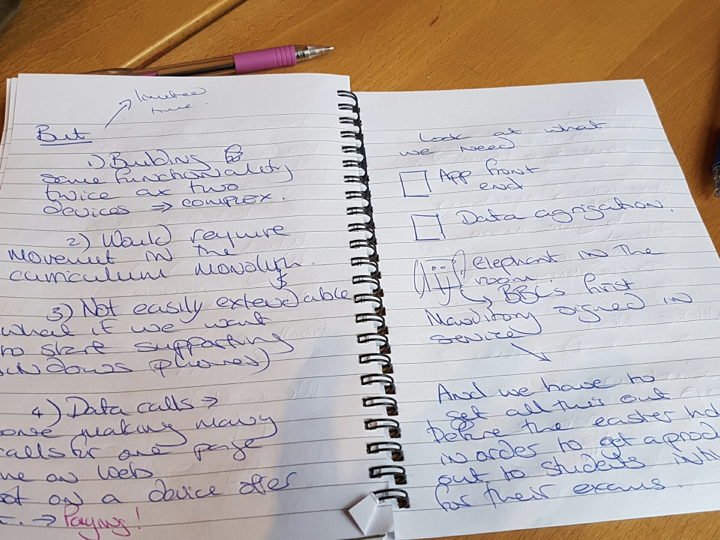 limited
time
But
1) Building
same functionality
twice at two
devices → COMPLEX.
2) Would require
movement in the
curriculum monolith.
3) Not easily extendable
what if we want
to start supporting
windows phones)
4) Data calls →
making many
calls for one page
on web
on a device after
→ Paying!
Look at what
we need
App front
end
Data agrigation.
elephant in the
room.
→ BBCs first
Manditory signed in
service
And we have to
get all this out
before the easter
in order to get a prod
out to students in
for their exams.